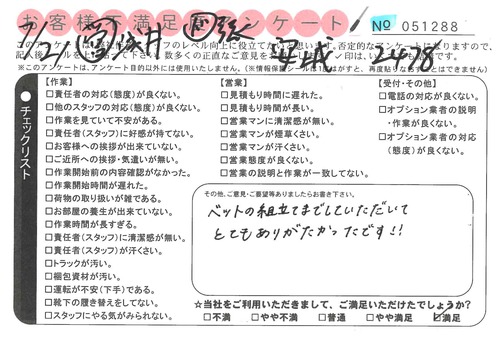 お客様不満足度アンケート！
No 051288
7/2 営 浅井 図張 安城 2418
※このアンケートは、アンケート目的以外には使用いたしません。
チェックリスト
【作業】
□責任者の対応(態度)が良くない。
□他のスタッフの対応(態度)が良くない。
□作業を見ていて不安がある。
□責任者(スタッフ)に好感が持てない。
□お客様への挨拶が出来ていない。
□ご近所への挨拶・気遣いが無い。
□作業開始前の内容確認がなかった。
□作業開始時間が遅れた。
□荷物の取り扱いが雑である。
□お部屋の養生が出来ていない。
□作業時間が長すぎる。
□責任者(スタッフ)に清潔感が無い。
□責任者(スタッフ)が汗くさい。
□トラックが汚い。
□梱包資材が汚い。
□運転が不安(下手)である。
□靴下の履き替えをしてない。
□スタッフにやる気がみられない。
【営業】
□見積もり時間に遅れた。
□見積もり時間が長い。
□営業マンに清潔感が無い。
□営業マンが煙草くさい。
□営業マンが汗くさい。
□営業態度が良くない。
□営業の説明と作業が一致してない。
【受付・その他】
□電話の対応が良くない。
□オプション業者の説明
・作業が良くない。
□オプション業者の対応
(態度)が良くない。
その他、ご意見・ご要望等ありましたらお書き下さい。
ベットの組立てまでしていただいて
とてもありがたかったです!!
☆当社をご利用いただきまして、ご満足いただけたでしょうか？
□不満 □やや不満 □普通 □やや満足 ☑満足